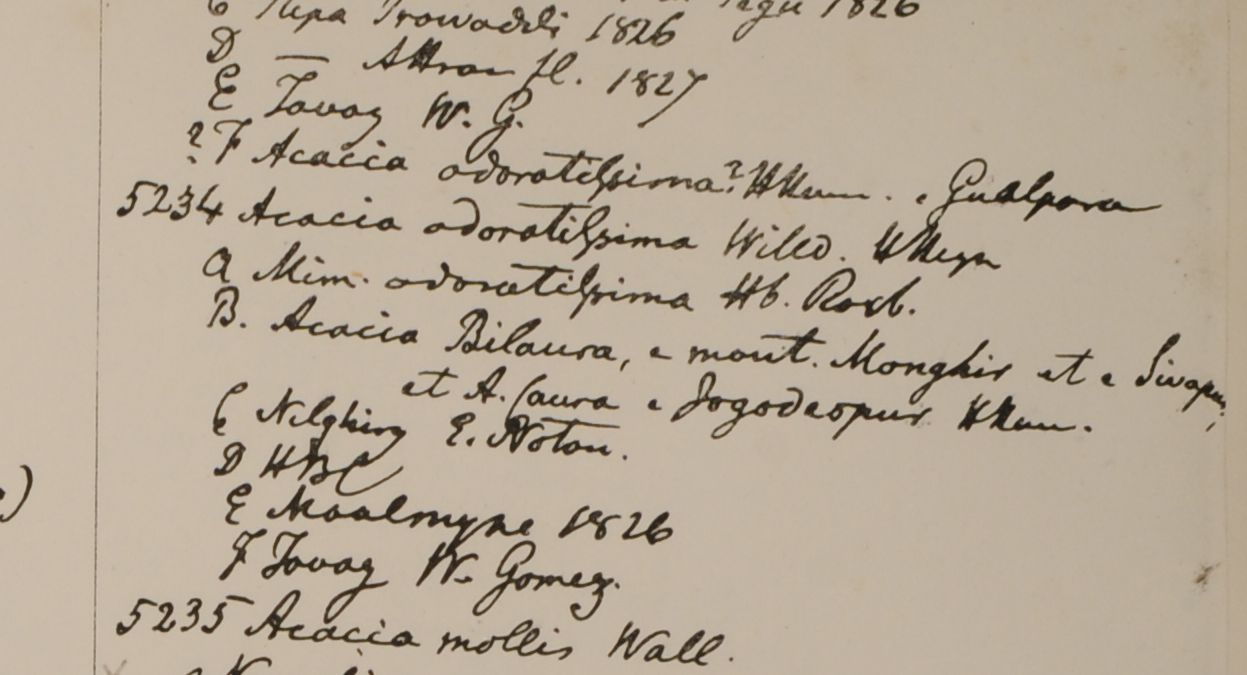 C Ripa Irowaddi 1826 Pegu 1826
D — Attran fl. 1827
E Tavoy W. G.
? F Acacia odoratissima? HHam. e Gualpara
5234 Acacia odoratissima Willd. HHeyn
a Mim. odoratissima Hb. Roxb.
B. Acacia Bilaura, e mont. Monghir et e Sivapur,
et A. Caura e Jogodeopur HHam.
C Nilghiry E. Noton.
D HBC
E Moalmyne 1826
F Tavoy W. Gomez.
5235 Acacia mollis Wall.